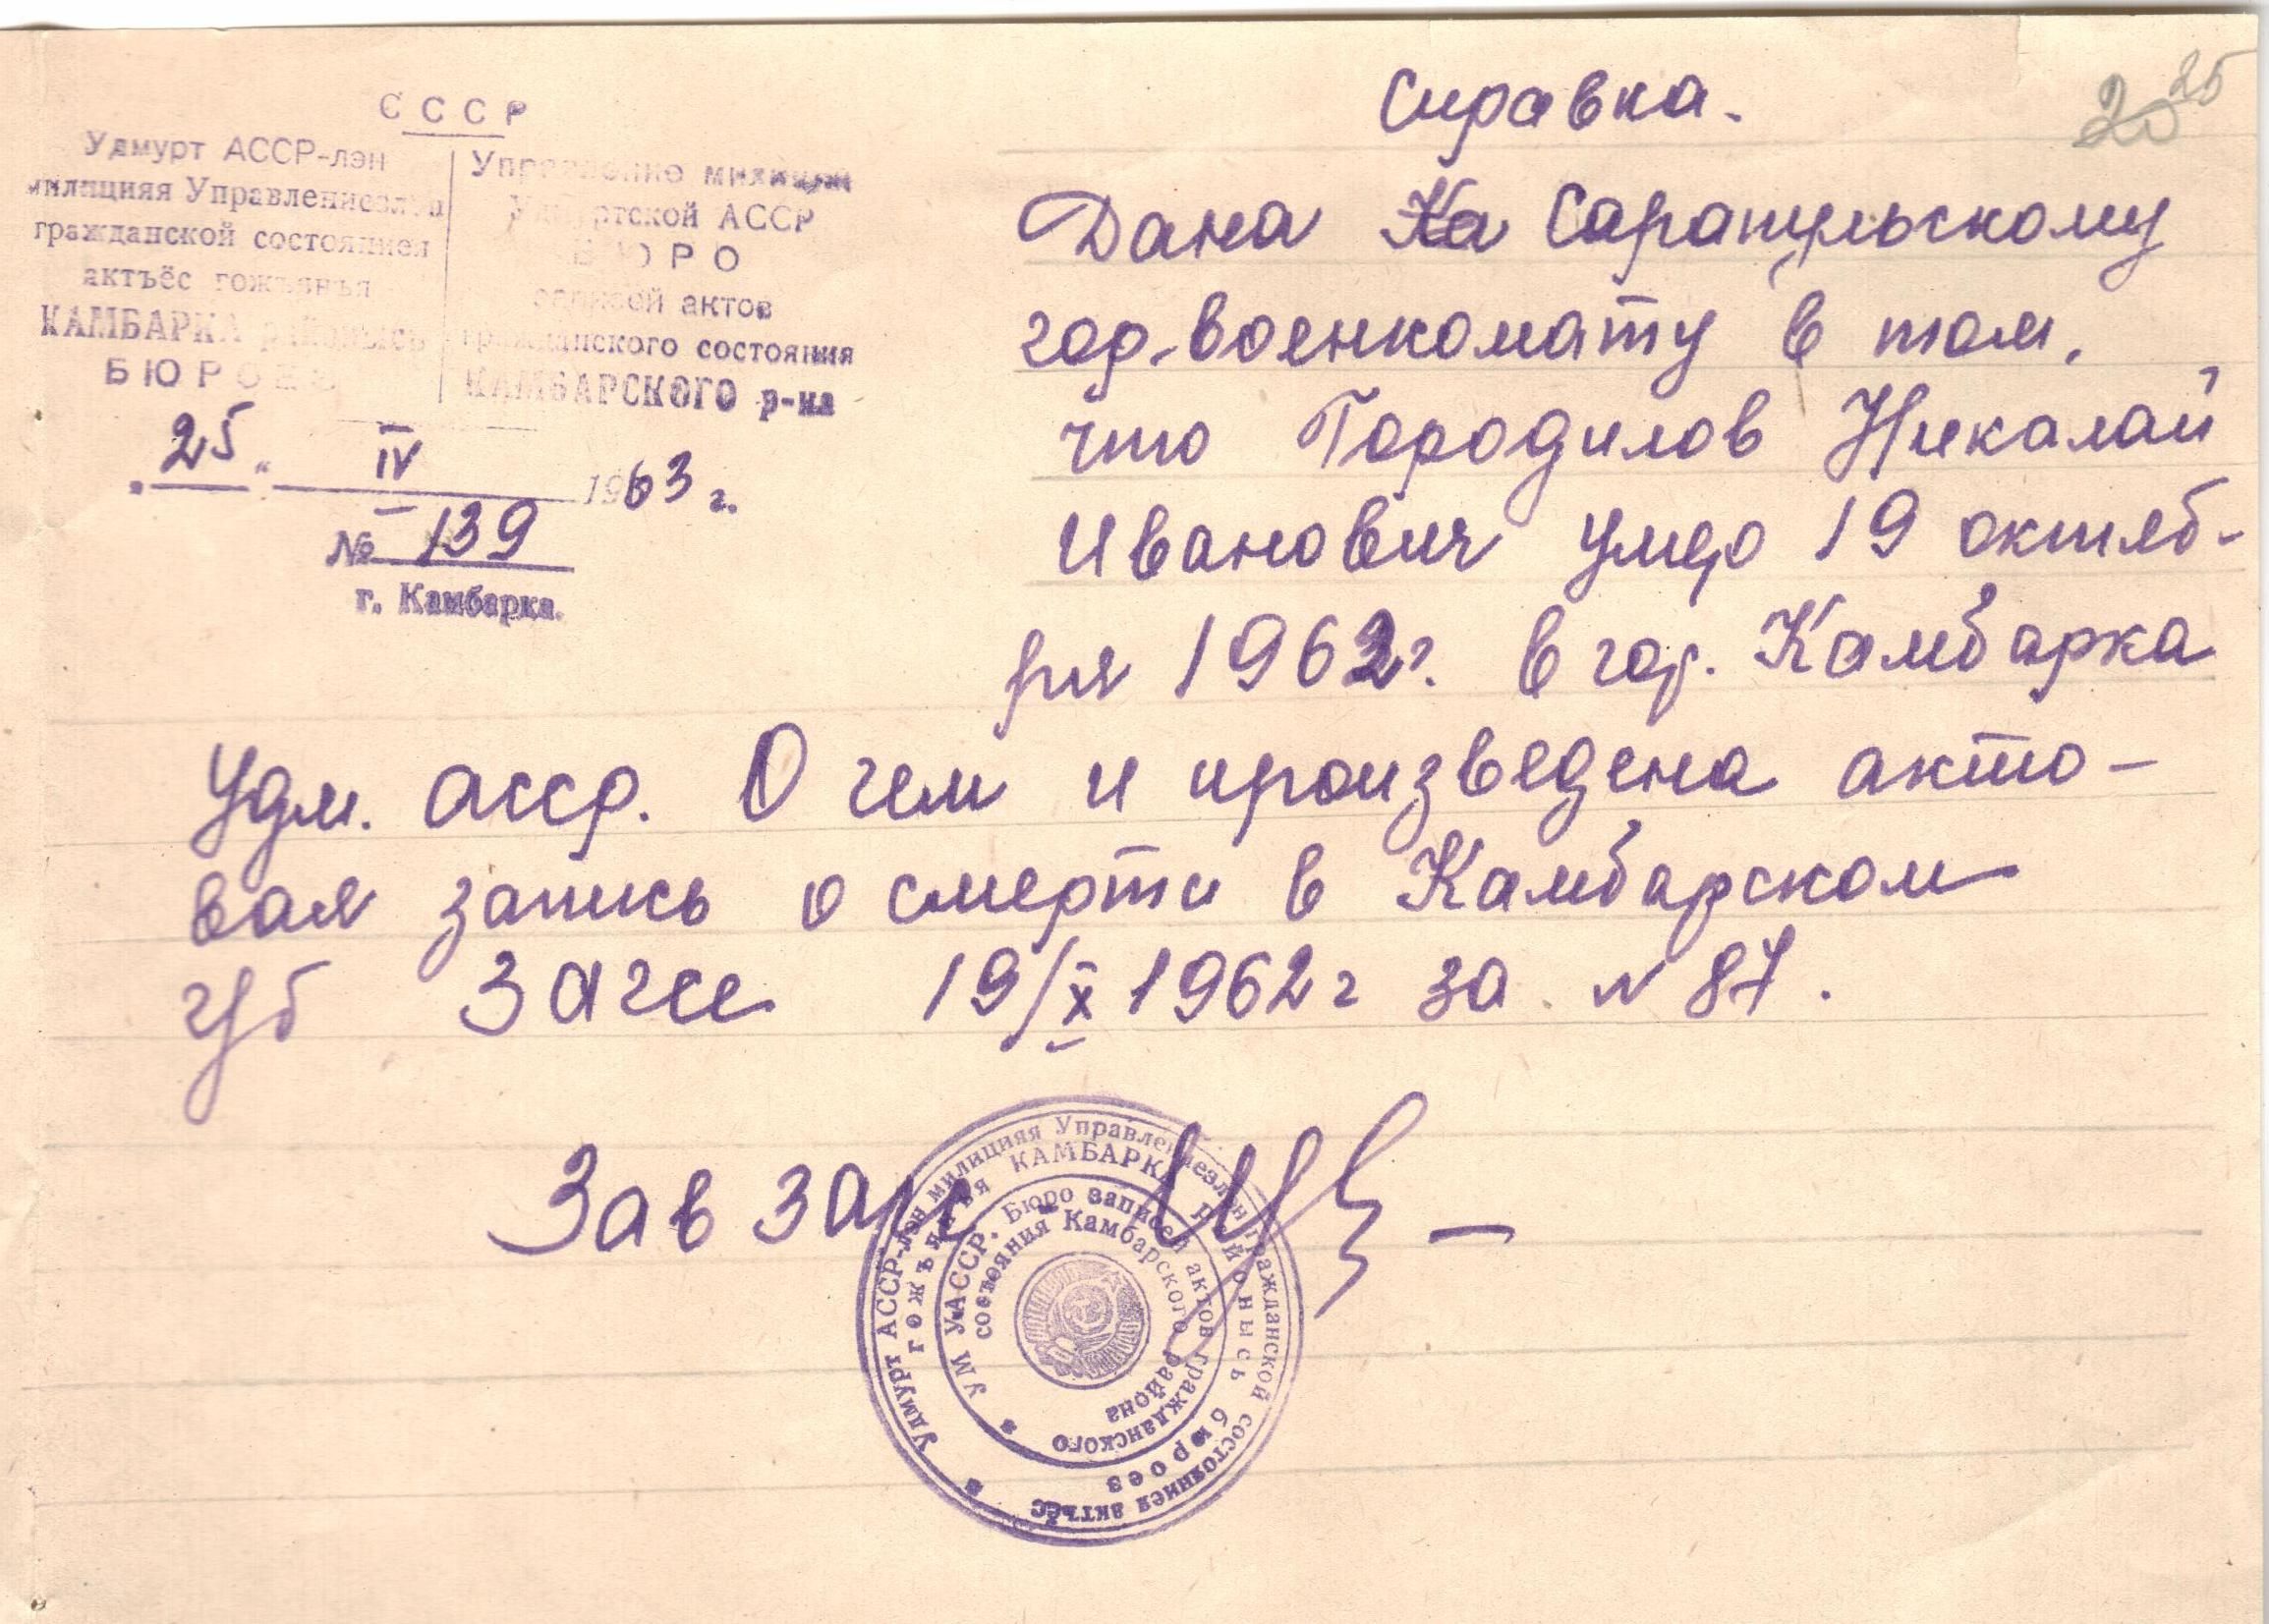 С С С Р
Удмурт АССР-лэн
милицияя Управлениезлэн
гражданской состояниея
актъёс гожъянъя
КАМБАРКА районысь
БЮРОЕЗ
Управление милиции
Удмуртской АССР
БЮРО
записей актов
гражданского состояния
КАМБАРСКОГО р-на
"25" IV 1963 г.
№ 139
г. Камбарка.
20 25
Справка.
Дана Ка Сарапульскому
гор. военкомату в том,
что Городилов Николай
Иванович умер 19 октяб-
ря 1962 г. в гор. Камбарка
Удм. асср. О чем и произведена акто-
вая запись о смерти в Камбарском
заgсе 19/X 1962 г за № 87.
Зав загс
Удмурт АССР-лэн милицияя Управлениезлэн гражданской состояниея актъёс
гожъянъя КАМБАРКА районысь бюроез
УМ УАССР. Бюро записей актов гражданского
состояния Камбарского района